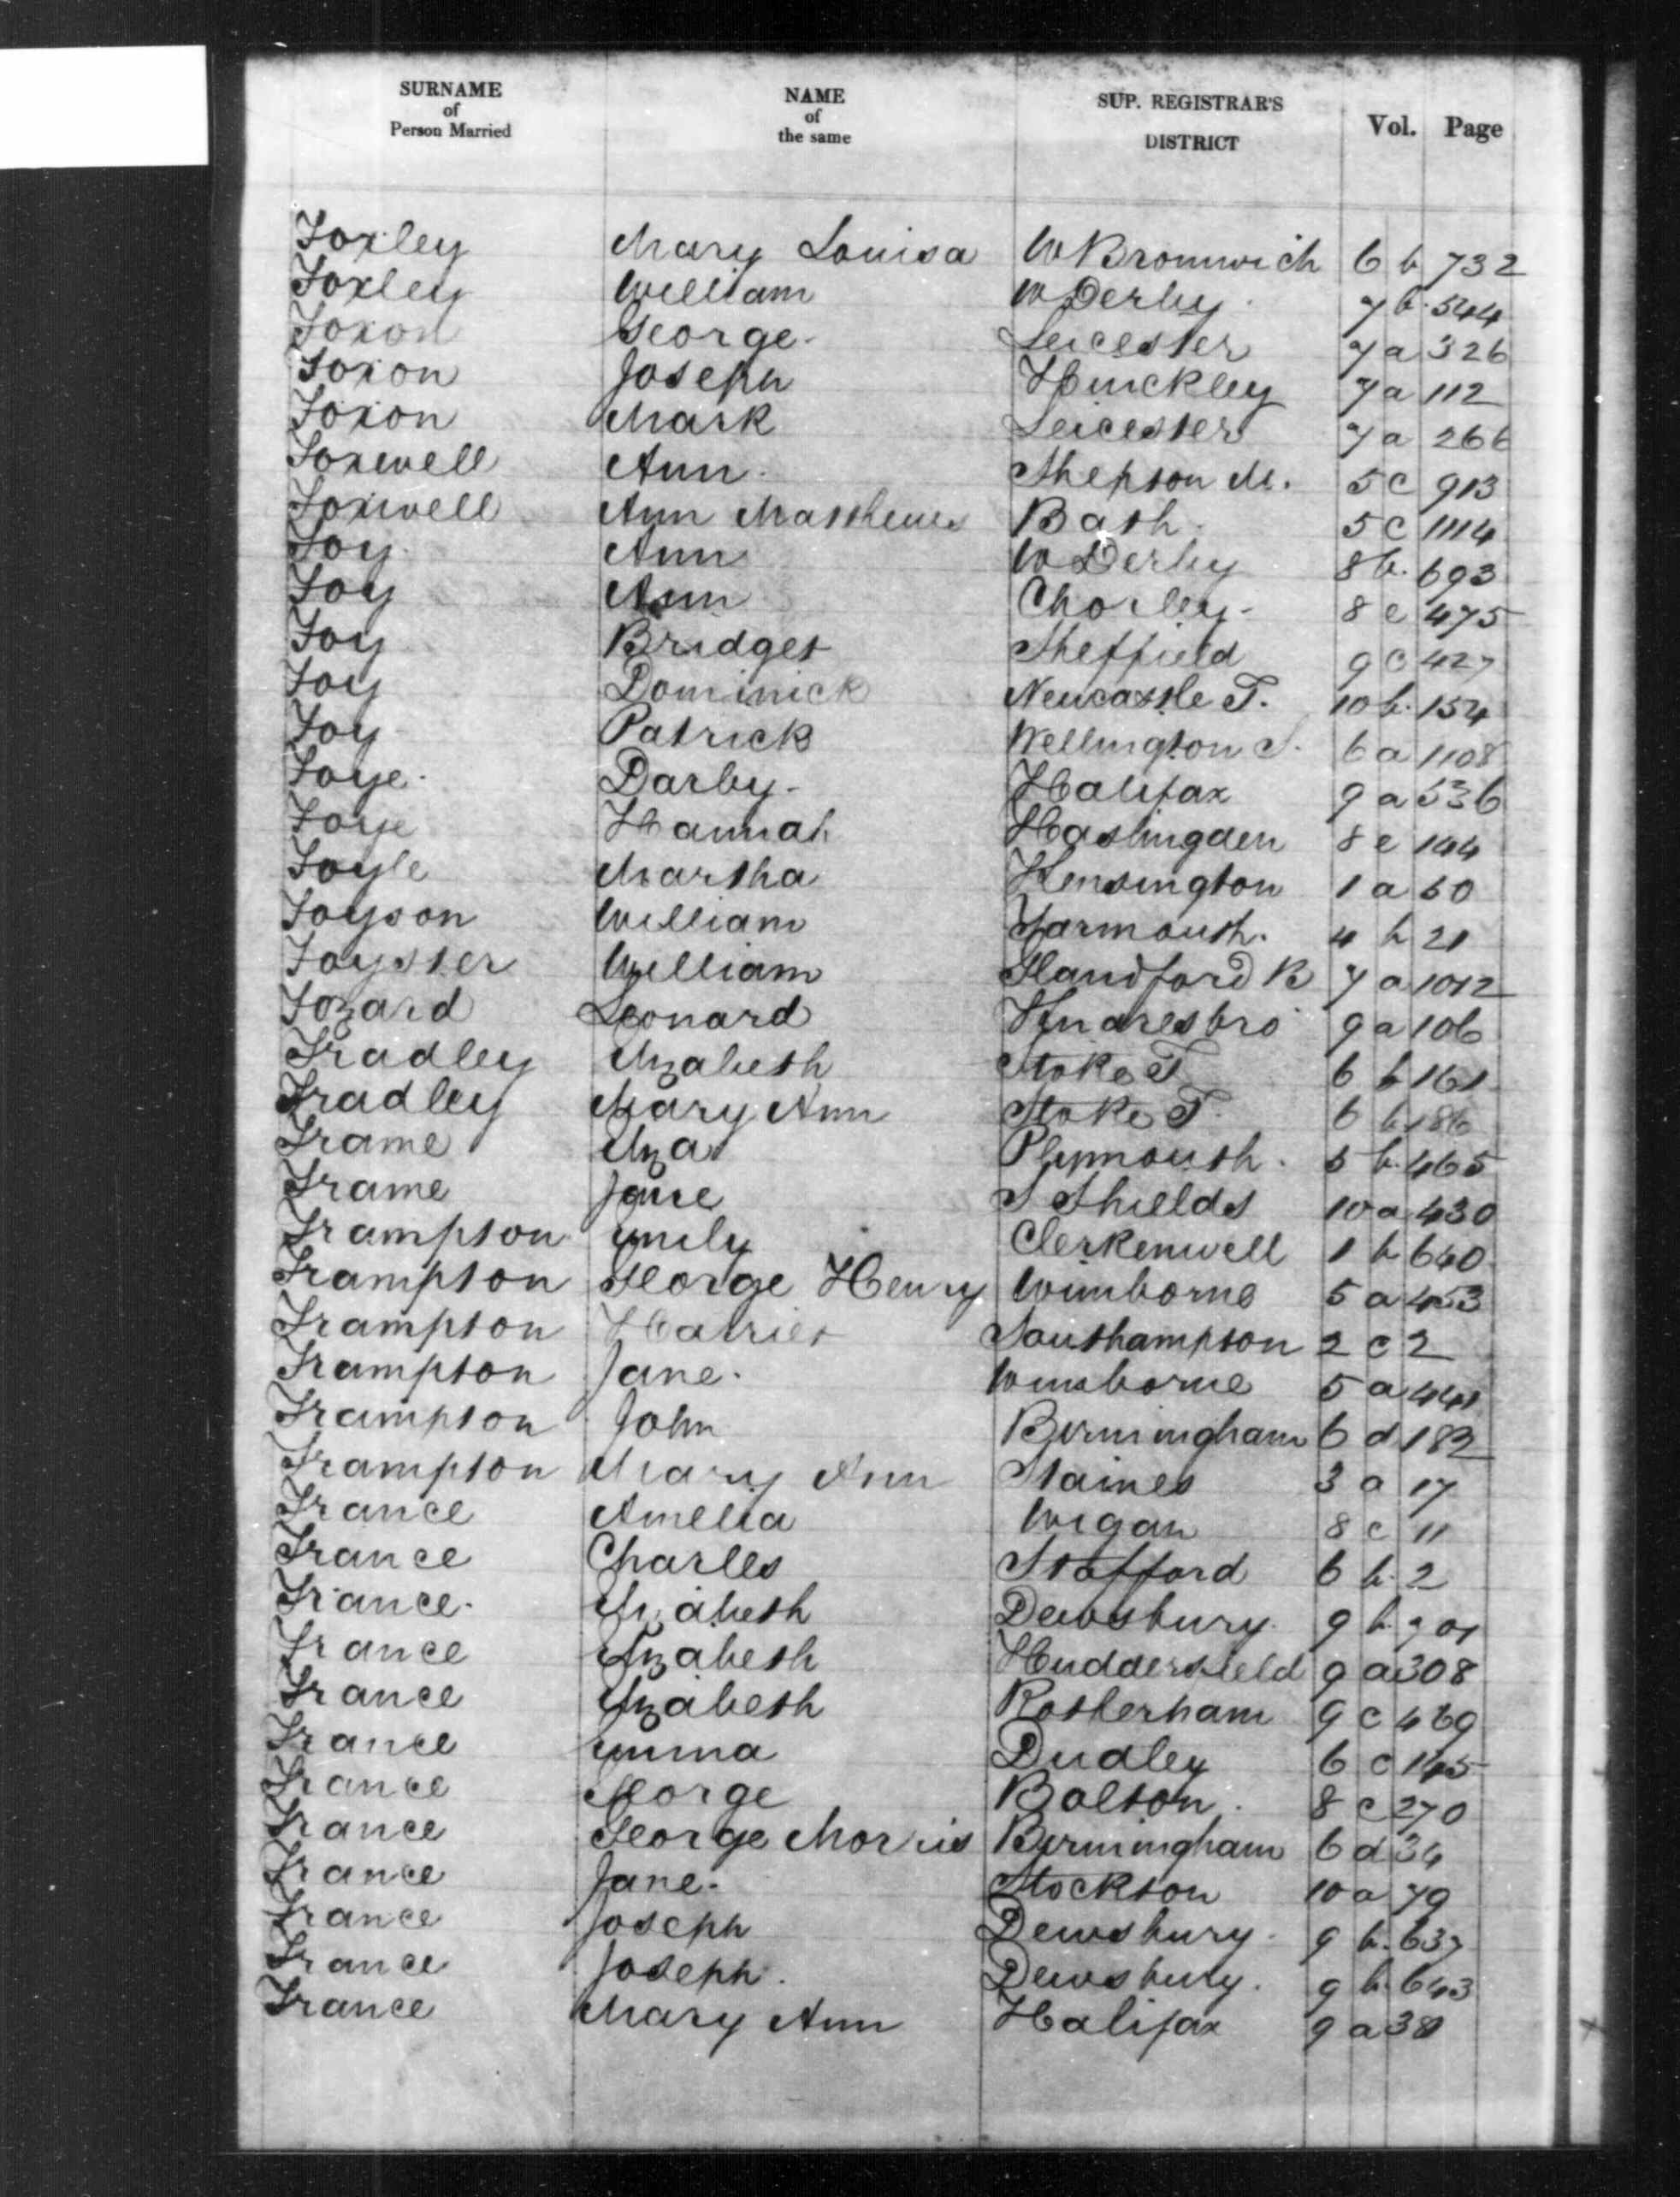 SURNAME of Person Married NAME of the same SUP. REGISTRAR'S DISTRICT Vol. Page
Foxley Mary Louisa W Bromwich 6 b 732
Foxley William W Derby 7 b 544
Foxon George Leicester 7 a 326
Foxon Joseph Hinckley 7 a 112
Foxon Mark Leicester 7 a 266
Foxwell Ann Shepton M. 5 c 913
Foxwell Ann Matthews Bath 5 c 1114
Foy Ann W Derby 8 b 693
Foy Ann Chorley 8 e 475
Foy Bridget Sheffield 9 c 427
Foy Dominick Newcastle T. 10 b 154
Foy Patrick Wellington S. 6 a 1108
Foye Darby Halifax 9 a 536
Foye Hannah Haslingden 8 e 144
Foyle Martha Kensington 1 a 50
Foyson William Yarmouth. 4 b 21
Foyster William Handford B 7 a 1012
Fozard Leonard Knaresbro 9 a 106
Fradley Elizabeth Stoke T 6 b 161
Fradley Mary Ann Stoke T. 6 b 186
Frame Eliza Plymouth. 5 b 465
Frame Jane S Shields 10 a 430
Frampton Emily Clerkenwell 1 b 640
Frampton George Henry Wimborne 5 a 453
Frampton Harriet Southampton 2 c 2
Frampton Jane. Wimborne 5 a 441
Frampton John Birmingham 6 d 182
Frampton Mary Ann Staines 3 a 17
France Amelia Wigan 8 c 11
France Charles Stafford 6 b 2
France Elizabeth Dewsbury 9 b
France Elizabeth Huddersfield 9 a 308
France Elizabeth Rotherham 9 c 469
France Emma Dudley 6 c 145
France George Bolton. 8 c 270
France George Morris Birmingham 6 d 34
France Jane. Stockton 10 a 79
France Joseph Dewsbury 9 b 637
France Joseph. Dewsbury. 9 b 643
France Mary Ann Halifax 9 a 381